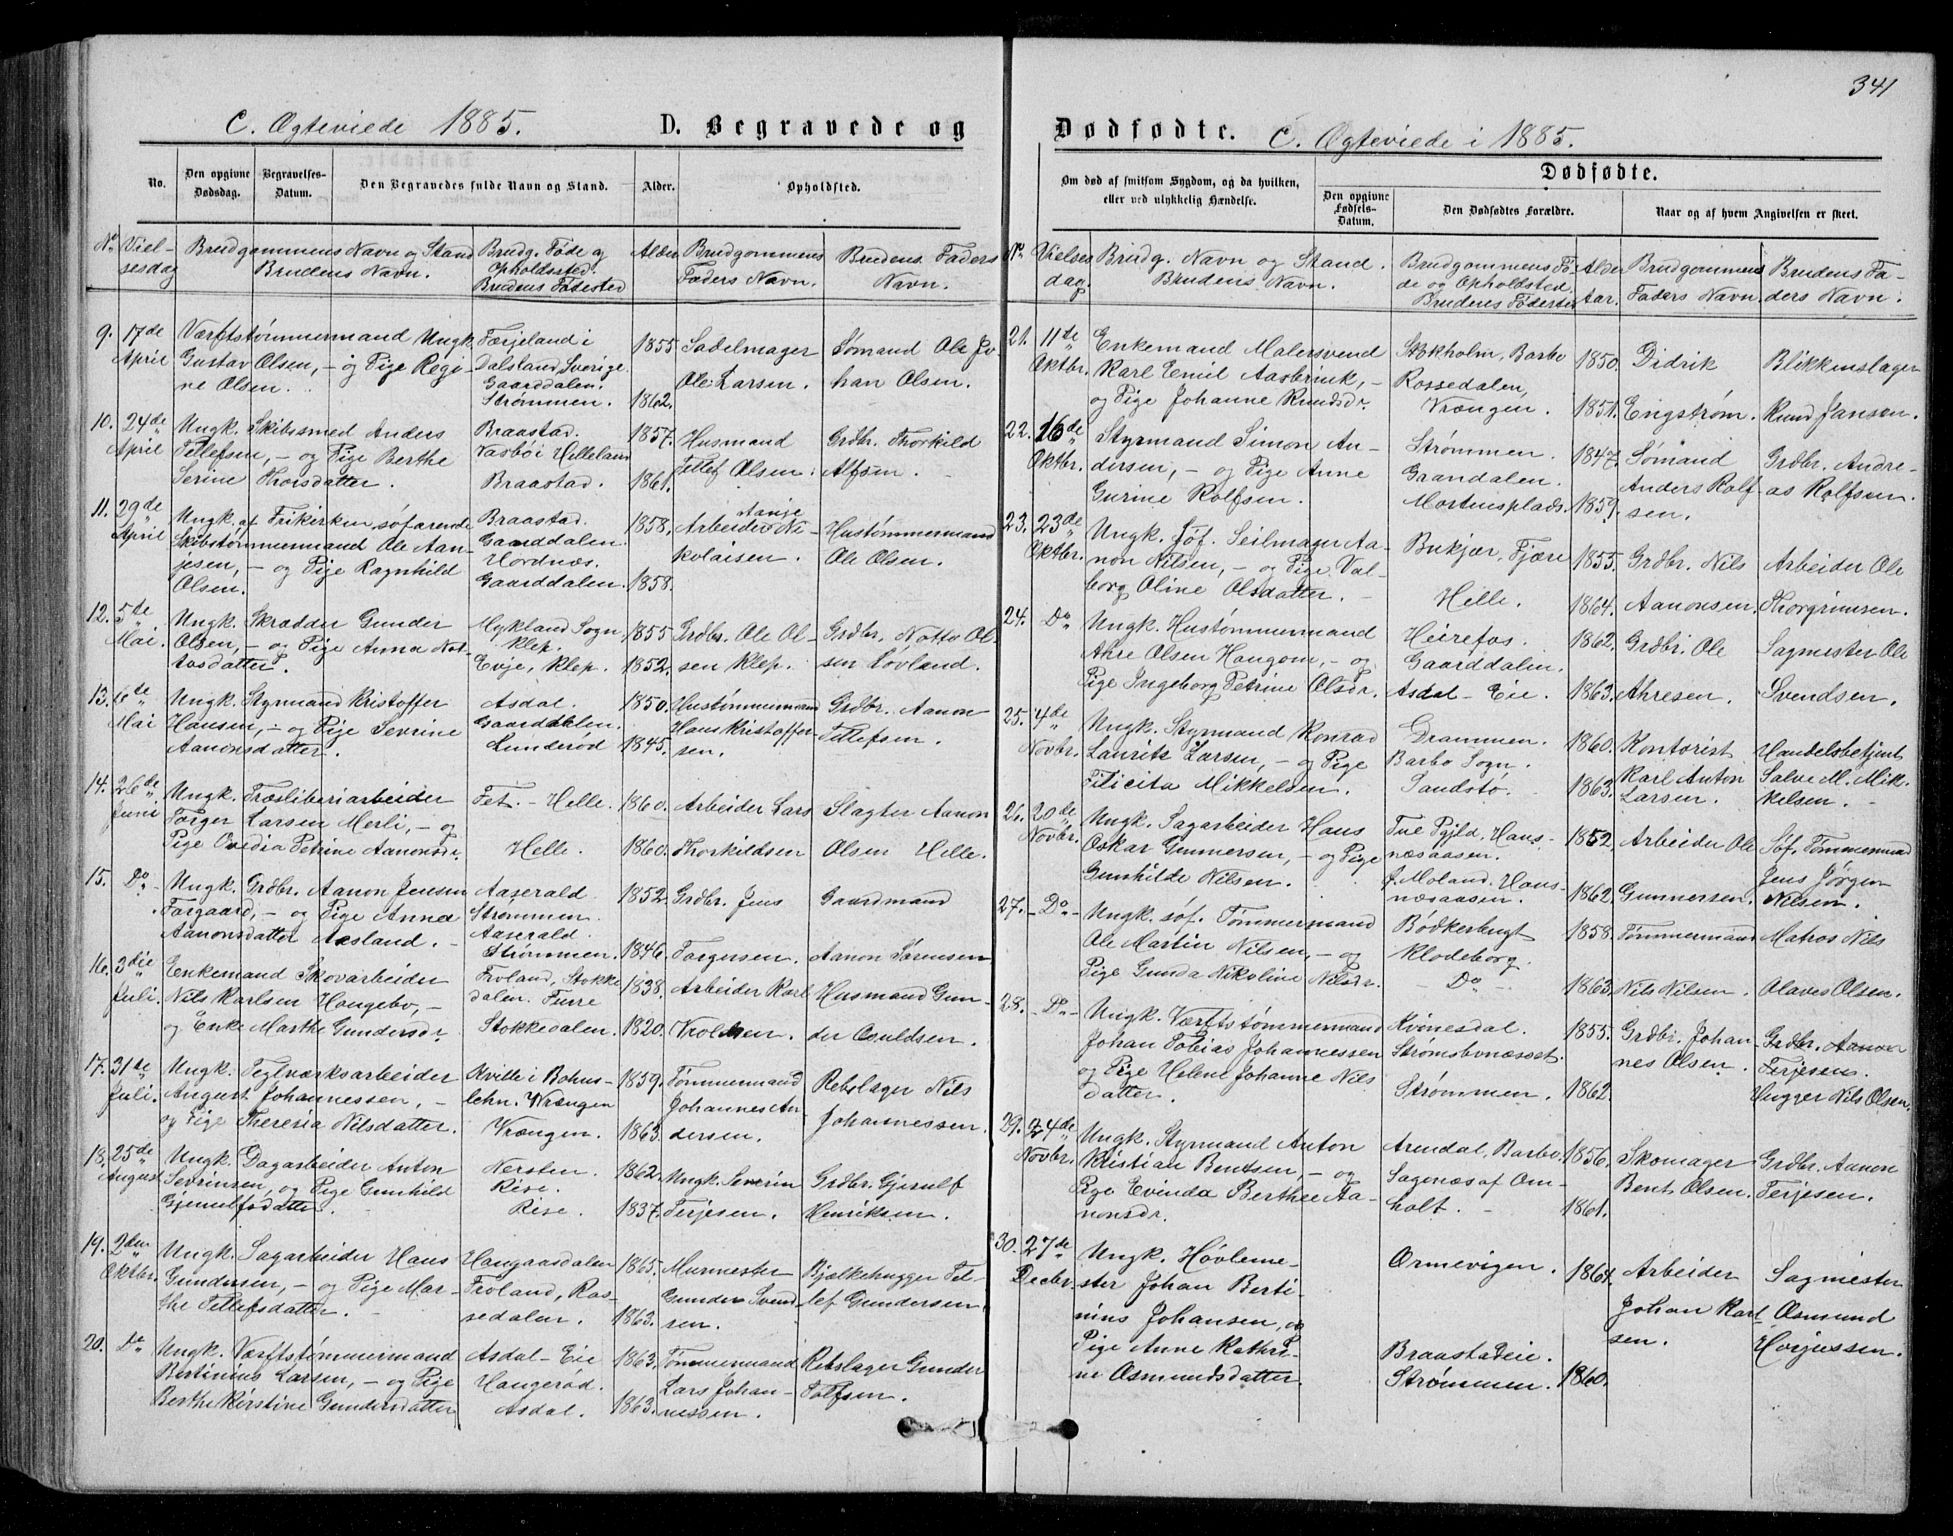 341
C. Ægteviede 1885.
D. Begravede og
Dødfødte.
C. Ægteviede i 1885.
No.
Den opgivne Dødsdag.
Begravelses-Datum.
Den Begravedes fulde Navn og Stand.
Alder.
Opholdsted.
Om død af smitsom Sygdom, og da hvilken, eller ved ulykkelig Hændelse.
Dødfødte.
Den opgivne Fødsels-Datum.
Den Dødfødtes Forældre.
Naar og af hvem Angivelsen er skeet.
No. Viel-sesdag
Brudgommens Navn og Stand
Brudens Navn.
Brudg. Føde og
Opholdssted.
Brudens Fødested
Alder
Brudgommens
Faders Navn.
Brudens Faders
Navn.
9. 17de April
Værftstømmermand Ungk.
Gustav Olsen, - og Pige Regi-
ne Olsen.
Færjeland i
Dalsland Sverige
Gaarddalen.
Strømmen.
1855
1862.
Sadelmager
Ole Larsen.
Sømand Ole Jo-
han Olsen.
10. 24de April
Ungk. Skibssmed Anders
Tellefsen, - og Pige Berthe
Serine Thorsdatter.
Braastad.
Vasbø i Helleland
Braastad.
1857.
1861.
Husmand
Tellef Olsen.
Grdbr. Thorkild
Alfsen.
11. 29de April
Ungk. af Frikirken, søfarende
Skibstømmermand Ole Aan-
jesen, - og Pige Ragnhild
Olsen.
Braastad.
Gaarddalen
Hordnæs.
Gaarddalen.
1858.
1858.
Aanje
Arbeider Ni-
kolaisen.
Hustømmermand
Ole Olsen.
12. 5de Mai.
Ungk. Skrædder Gunder
Olsen, - og Pige Anna Not-
tosdatter.
Mykland Sogn
Klep.
Evje, Klep.
1855
1852.
Grdbr. Ole Ol-
sen Klep.
Grdbr. Notto Ol-
sen Løvland.
13. 6de Mai
Ungk. Styrmand Kristoffer
Hansen, - og Pige Sevrine
Aanonsdatter.
Asdal.
Gaarddalen.
Lunderød
1850.
1845.
Hustømmermand
Hans Kristoffer-
sen.
Grdbr. Aanon
Tellefsen.
14. 26de Juni
Ungk. Træsliberiarbeider
Torger Larsen Merli, - og
Pige Ovedia Petrine Aanonsdr.
Fet. - Helle.
Helle.
1860.
1860.
Arbeider Lars
Thorkildsen
Slagter Aanon
Olsen Helle.
15. Do.
Ungk. Grdbr. Aanon Jensen
Torgaard, - og Pige Anna
Aanonsdatter Aasland.
Aaserald
Strømmen.
Aaserald.
Strømmen.
1852.
1846.
Grdbr. Jens
Torgersen.
Gaardmand
Aanon Sørensen
16. 3die Juli.
Enkemand Skovarbeider
Nils Karlsen Haugebo, -
og Enke Marthe Gundersdr.
Froland, Stokke
dalen. Furre
Stokkedalen.
1838.
1820.
Arbeider Karl
Husmand Gun-
der Osuldsen.
17. 31te Juli.
Ungk. Teglværksarbeider
August Johannessen, -
og Pige Theresia Nilsdatter.
Kville i Bohus-
lehn. Vrængen
Vrængen.
1859.
1863.
Tømmermand
Johannes An
dersen.
Rebslager Nils
Johannessen.
18. 25de August
Ungk. Dagarbeider Anton
Sevrinsen, og Pige Gunhild
Gjerulfsdatter.
Nersten.
Rise.
Rise.
1862.
1837.
Ungk. Severin
Terjesen.
Grdbr. Gjerulf
Henriksen.
19. 2den Oktbr.
Ungk. Sagarbeider Hans
Gundersen, - og Pige Mar-
the Tellefsdatter.
Haugaasdalen
Froland, Ros-
sedalen.
1865.
1863.
Murmester
Gunder Svend
sen.
Bjælkehugger Tel-
lef Gundersen.
20. Do
Ungk. Værftstømmermand
Bertinius Larsen, - og Pige
Berthe Kirstine Gundersdatter
Asdal-Eie
Haugerød.
Asdal.
1863.
1863.
Tømmermand
Lars Johan-
nessen.
Rebslager Gunder
Tolfsen.
No. Vielses dag.
Brudg. Navn og Stand.
Brudens Navn.
Brudgommens Fø-
de og Opholdsted.
Brudens Fødested
Alder
Aar.
Brudgommens
Faders Navn.
Brudens Fa-
ders Navn.
21. 11te Oktbr.
Enkemand Malersvend
Karl Emil Aasbrink, -
og Pige Johanne Knudsdr.
Stokholm, Barbo
Rossedalen,
Vrængen.
1850.
1851.
Didrik
Engstrøm.
Blikkenslager
Knud Jansen.
22. 16de Oktbr.
Styrmand Simon An-
dersen, - og Pige Anne
Gurine Rolfsen.
Strømmen.
Gaarddalen.
Mortensplads.
1847.
1859.
Sømand
Anders Rolf-
sen.
Grdbr. Andre-
as Rolfsen.
23. 23de Oktbr.
Ungk. Søf. Seilmager Aa-
non Nilsen, - og Pige Val-
borg Oline Olsdatter.
Bukjær, Fjære
Helle.
1855.
1864.
Grdbr. Nils
Aanonsen.
Arbeider Ole
Thorgrimsen.
24. Do.
Ungk. Hustømmermand
Ahre Olsen Haugom, - og
Pige Ingeborg Petrine Olsdr.
Heirefos.
Gaarddalen.
Asdal-Eie.
1862.
1863.
Grdbr. Ole
Ahresen.
Sagmester Ole
Svendsen.
25. 4de Novbr.
Ungk. Styrmand Konrad
Lauritz Larsen, - og Pige
Filicita Mikkelsen.
Drammen.
Barbo Sogn.
Sandstø.
1860.
1863.
Kontorist
Karl Anton
Larsen.
Handelsbetjent
Salve M. Mik-
kelsen.
26. 20de Novbr.
Ungk. Sagarbeider Hans
Oskar Gunnersen, - og Pige
Gunhilde Nilsen.
Tve Pgjld, Haus-
næsaasen.
Ø. Moland. Haus-
næsaasen.
1852.
1862.
Arbeider Ole
Gunnersen.
Søf. Tømmermand
Jens Jørgen
Nilsen.
27. Do
Ungk. søf. Tømmermand
Ole Martin Nilsen, - og
Pige Gunda Nikoline Nilsdr.
Bødkerbugt
Klodeborg.
Do
1858.
1863.
Tømmermand
Nils Nilsen.
Matros Nils
Olaves Olsen.
28. Do
Ungk. Værftstømmermand
Johan Tobias Johannessen
og Pige Helene Johanne Nils
datter.
Kvinesdal.
Strømsbunæsset.
Strømmen.
1855.
1862.
Grdbr. Johan-
nes Olsen.
Grdbr. Aanon
Terjesen.
Hugger Nils Olsen.
29. 24de Novbr.
Ungk. Styrmand Anton
Kristian Bentsen, - og
Pige Evinda Berthee Aa-
nonsdr.
Arendal, Barbo.
Sagenæs af Om-
holt.
1856.
1861.
Skomager
Bent Olsen.
Grdbr. Aanon
Terjesen.
30. 27de Decbr.
Ungk. Høvleme-
ster Johan Berti-
nius Johansen, og
Pige Anne Kathri-
ne Osmundsdatter.
Ormevigen.
Braastadeie.
Strømmen.
1861.
1860.
Arbeider
Johan Karl
sen.
Sagmester
Osmund
Horjussen.